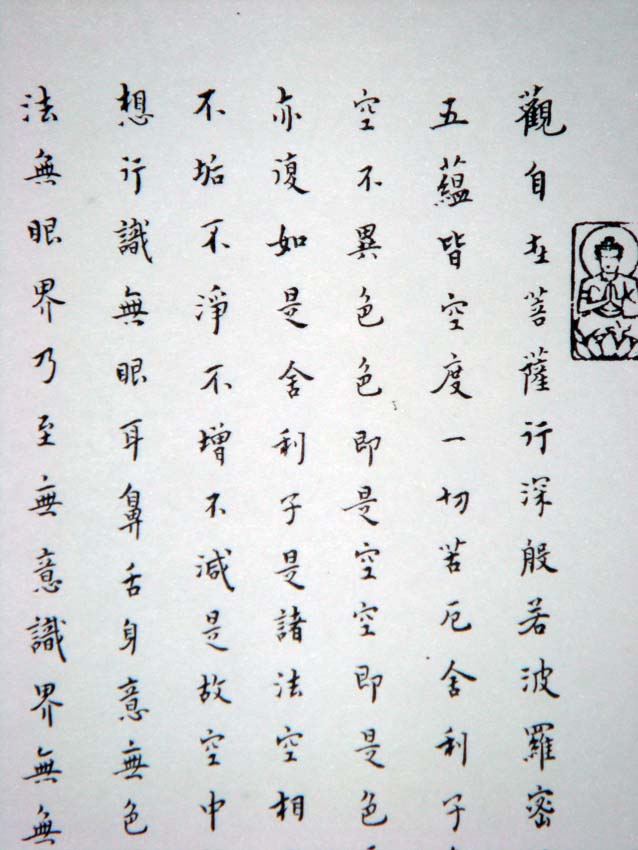 觀自在菩薩行深般若波羅密
五蘊皆空度一切苦厄舍利子
空不異色色即是空空即是色
亦復如是舍利子是諸法空相
不垢不淨不增不減是故空中
想行識無眼耳鼻舌身意無色
法無眼界乃至無意識界無無